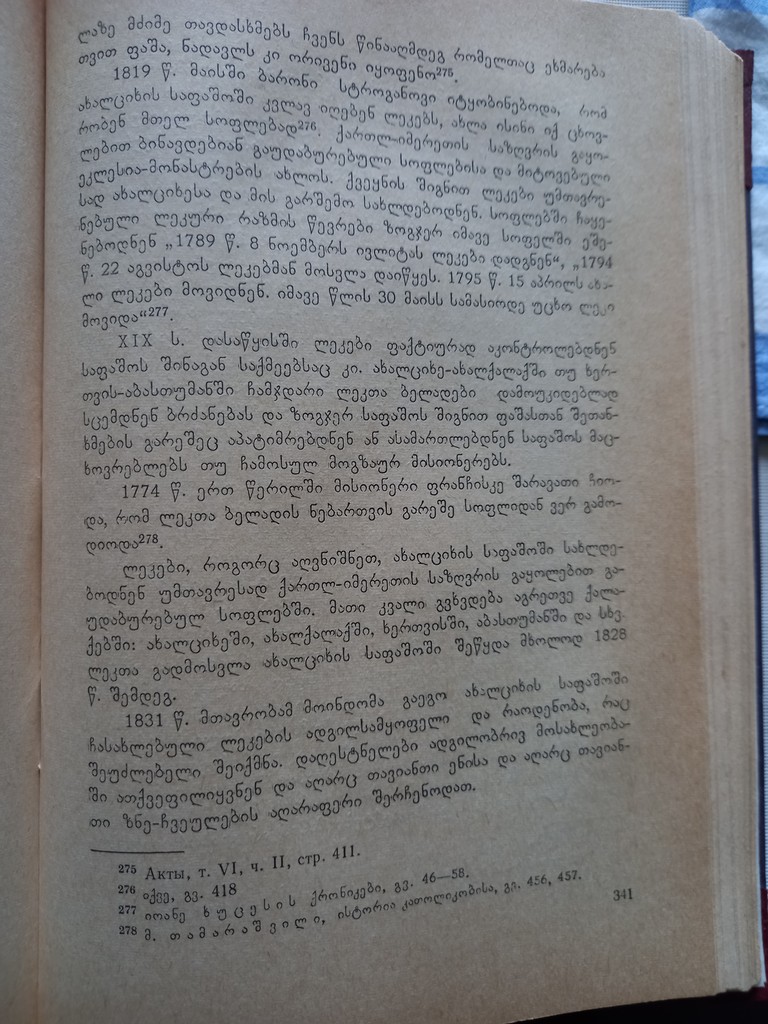 ლაზე მძიმე თავდასხმებს ჩვენს წინააღმდეგ რომელთაც ეხმარება
თვით ფაშა, ნადავლს კი ორივენი იყოფენო²⁷⁵.
1819 წ. მაისში ბარონი სტროგანოვი იტყობინებოდა, რომ
ახალციხის საფაშოში კვლავ იღებენ ლეკებს, ახლა ისინი იქ ცხოვ-
რობენ მთელ სოფლებად²⁷⁶. ქართლ-იმერეთის საზღვრის გაყო-
ლებით ბინავდებიან გაუდაბურებული სოფლებისა და მიტოვებული
ეკლესია-მონასტრების ახლოს. ქვეყნის შიგნით ლეკები უმთავრე-
სად ახალციხესა და მის გარშემო სახლდებოდნენ. სოფლებში ჩაყე-
ნებული ლეკური რაზმის წევრები ზოგჯერ იმავე სოფელში ეშე-
ნებოდნენ „1789 წ. 8 ნოემბერს ივლიტას ლეკები დადგნენ“, „1794
წ. 22 აგვისტოს ლეკებმან მოსვლა დაიწყეს. 1795 წ. 15 აპრილს ახა-
ლი ლეკები მოვიდნენ. იმავე წლის 30 მაისს სამასიოდე უცხო ლეკი
მოვიდა“²⁷⁷.
XIX ს. დასაწყისში ლეკები ფაქტიურად აკონტროლებდნენ
საფაშოს შინაგან საქმეებსაც კი. ახალციხე-ახალქალაქში თუ ხერ-
თვის-აბასთუმანში ჩამჯდარი ლეკთა ბელადები დამოუკიდებლად
სცემდნენ ბრძანებას და ზოგჯერ საფაშოს შიგნით ფაშასთან შეთან-
ხმების გარეშეც აპატიმრებდნენ ან ასამართლებდნენ საფაშოს მაც-
ხოვრებლებს თუ ჩამოსულ მოგზაურ მისიონერებს.
1774 წ. ერთ წერილში მისიონერი ფრანჩისკე შარავათი ჩიო-
და, რომ ლეკთა ბელადის ნებართვის გარეშე სოფლიდან ვერ გამო-
დიოდა²⁷⁸.
ლეკები, როგორც აღვნიშნეთ, ახალციხის საფაშოში სახლდე-
ბოდნენ უმთავრესად ქართლ-იმერეთის საზღვრის გაყოლებით გა-
უდაბურებულ სოფლებში. მათი კვალი გვხვდება აგრეთვე ქალა-
ქებში: ახალციხეში, ახალქალაქში, ხერთვისში, აბასთუმანში და სხვ.
ლეკთა გადმოსვლა ახალციხის საფაშოში შეწყდა მხოლოდ 1828
წ. შემდეგ.
1831 წ. მთავრობამ მოინდომა გაეგო ახალციხის საფაშოში
ჩასახლებული ლეკების ადგილსამყოფელი და რაოდენობა, რაც
შეუძლებელი შეიქმნა. დაღესტნელები ადგილობრივ მოსახლეობა-
ში ათქვეფილიყვნენ და აღარც თავიანთი ენისა და აღარც თავიან-
თი ზნე-ჩვეულების აღარაფერი შერჩენოდათ.
²⁷⁵ Акты, т. VI, ч. II, стр. 411.
²⁷⁶ იქვე, გვ. 418
²⁷⁷ იოანე ხუცესის ქრონიკები, გვ. 46—58.
²⁷⁸ მ. თამარაშვილი, ისტორია კათოლიკობისა, გვ. 456, 457.
341